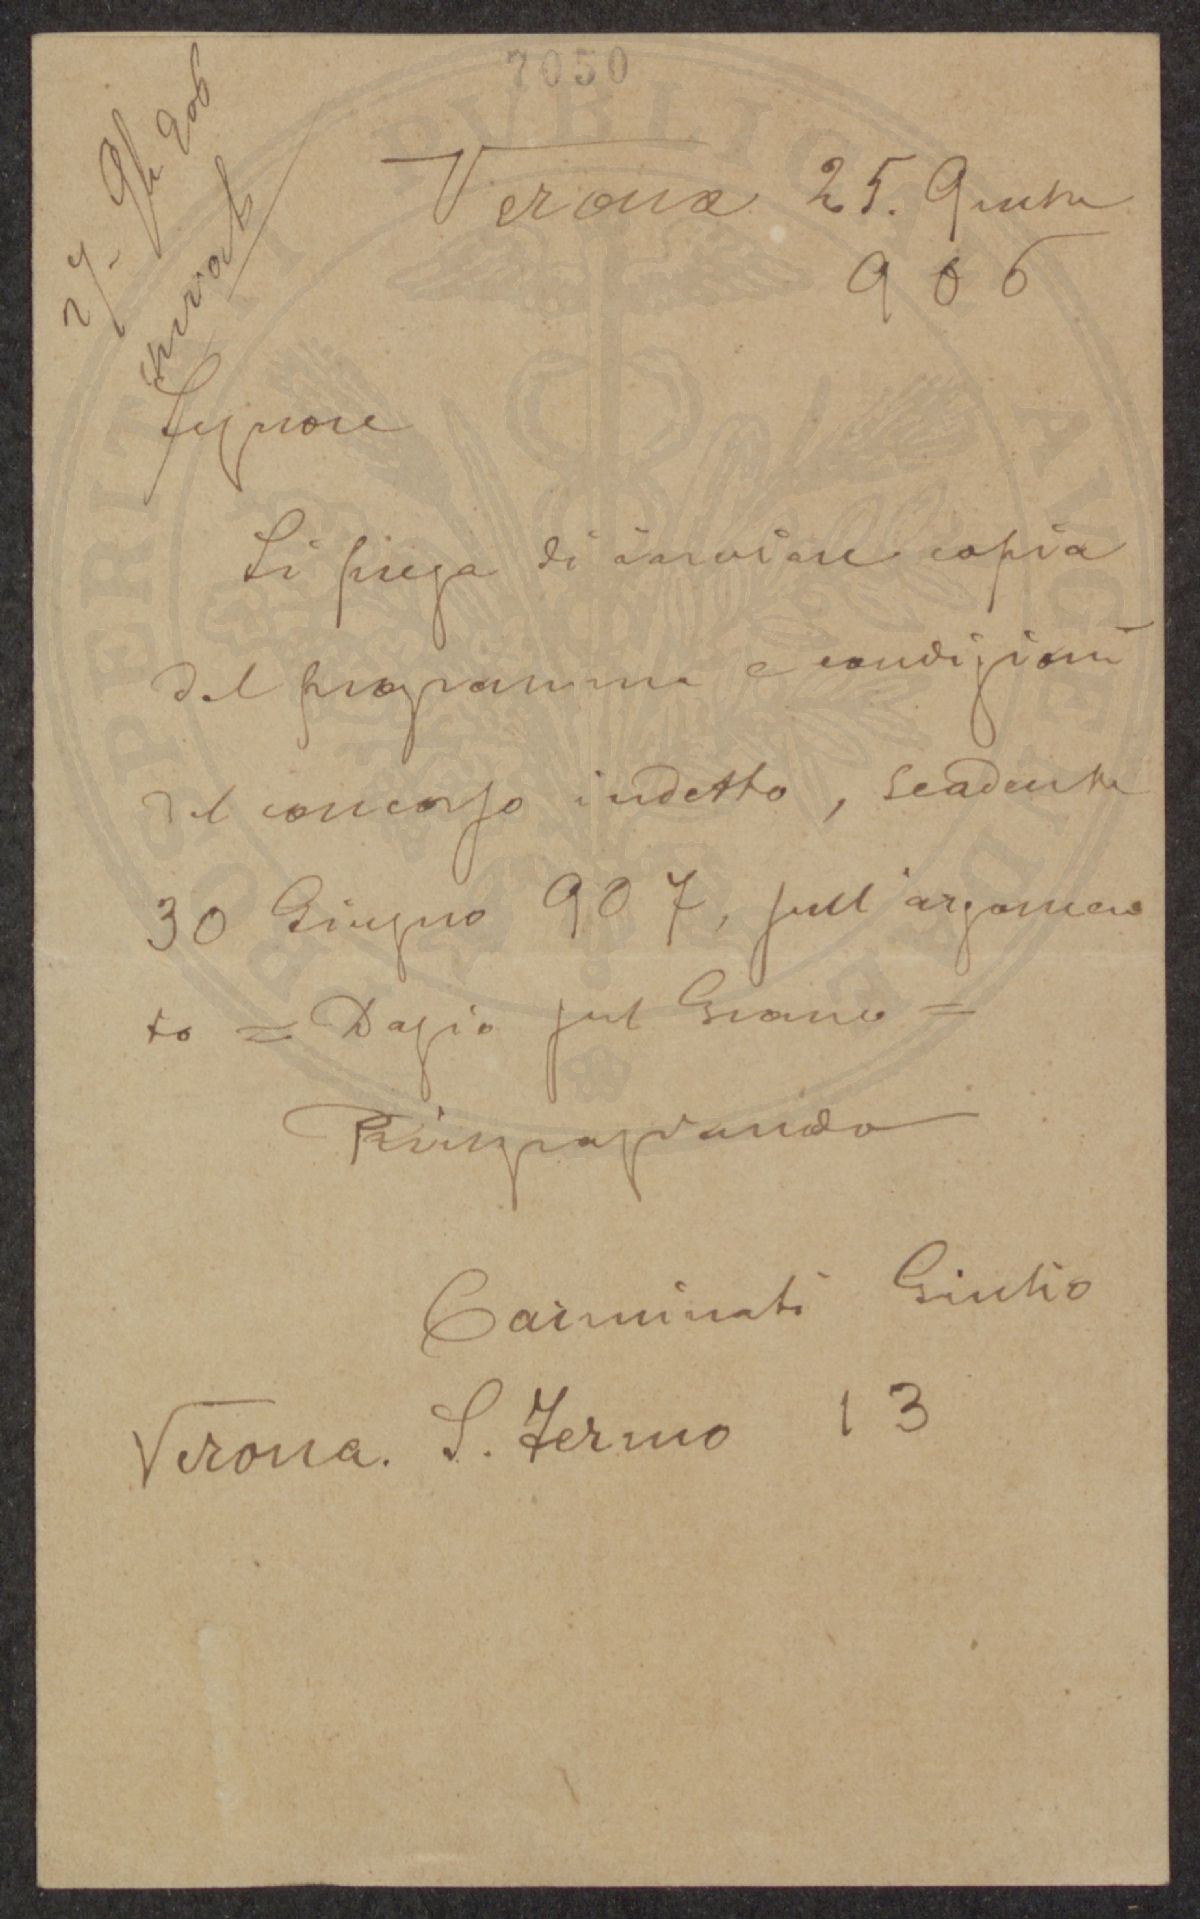 7050
27. 9b 906
inviato
Verona 25. 9mbre
906
Signore
Si prega di inviare copia
del programma e condizioni
del concorso indetto, scadente
30 Giugno 907, sull'argomen
to = Dazio sul Grano =
Ringraziando
Carminati Giulio
Verona. S. Fermo 13
PVBLICAE
AVGENDAE
PROSPERITATI